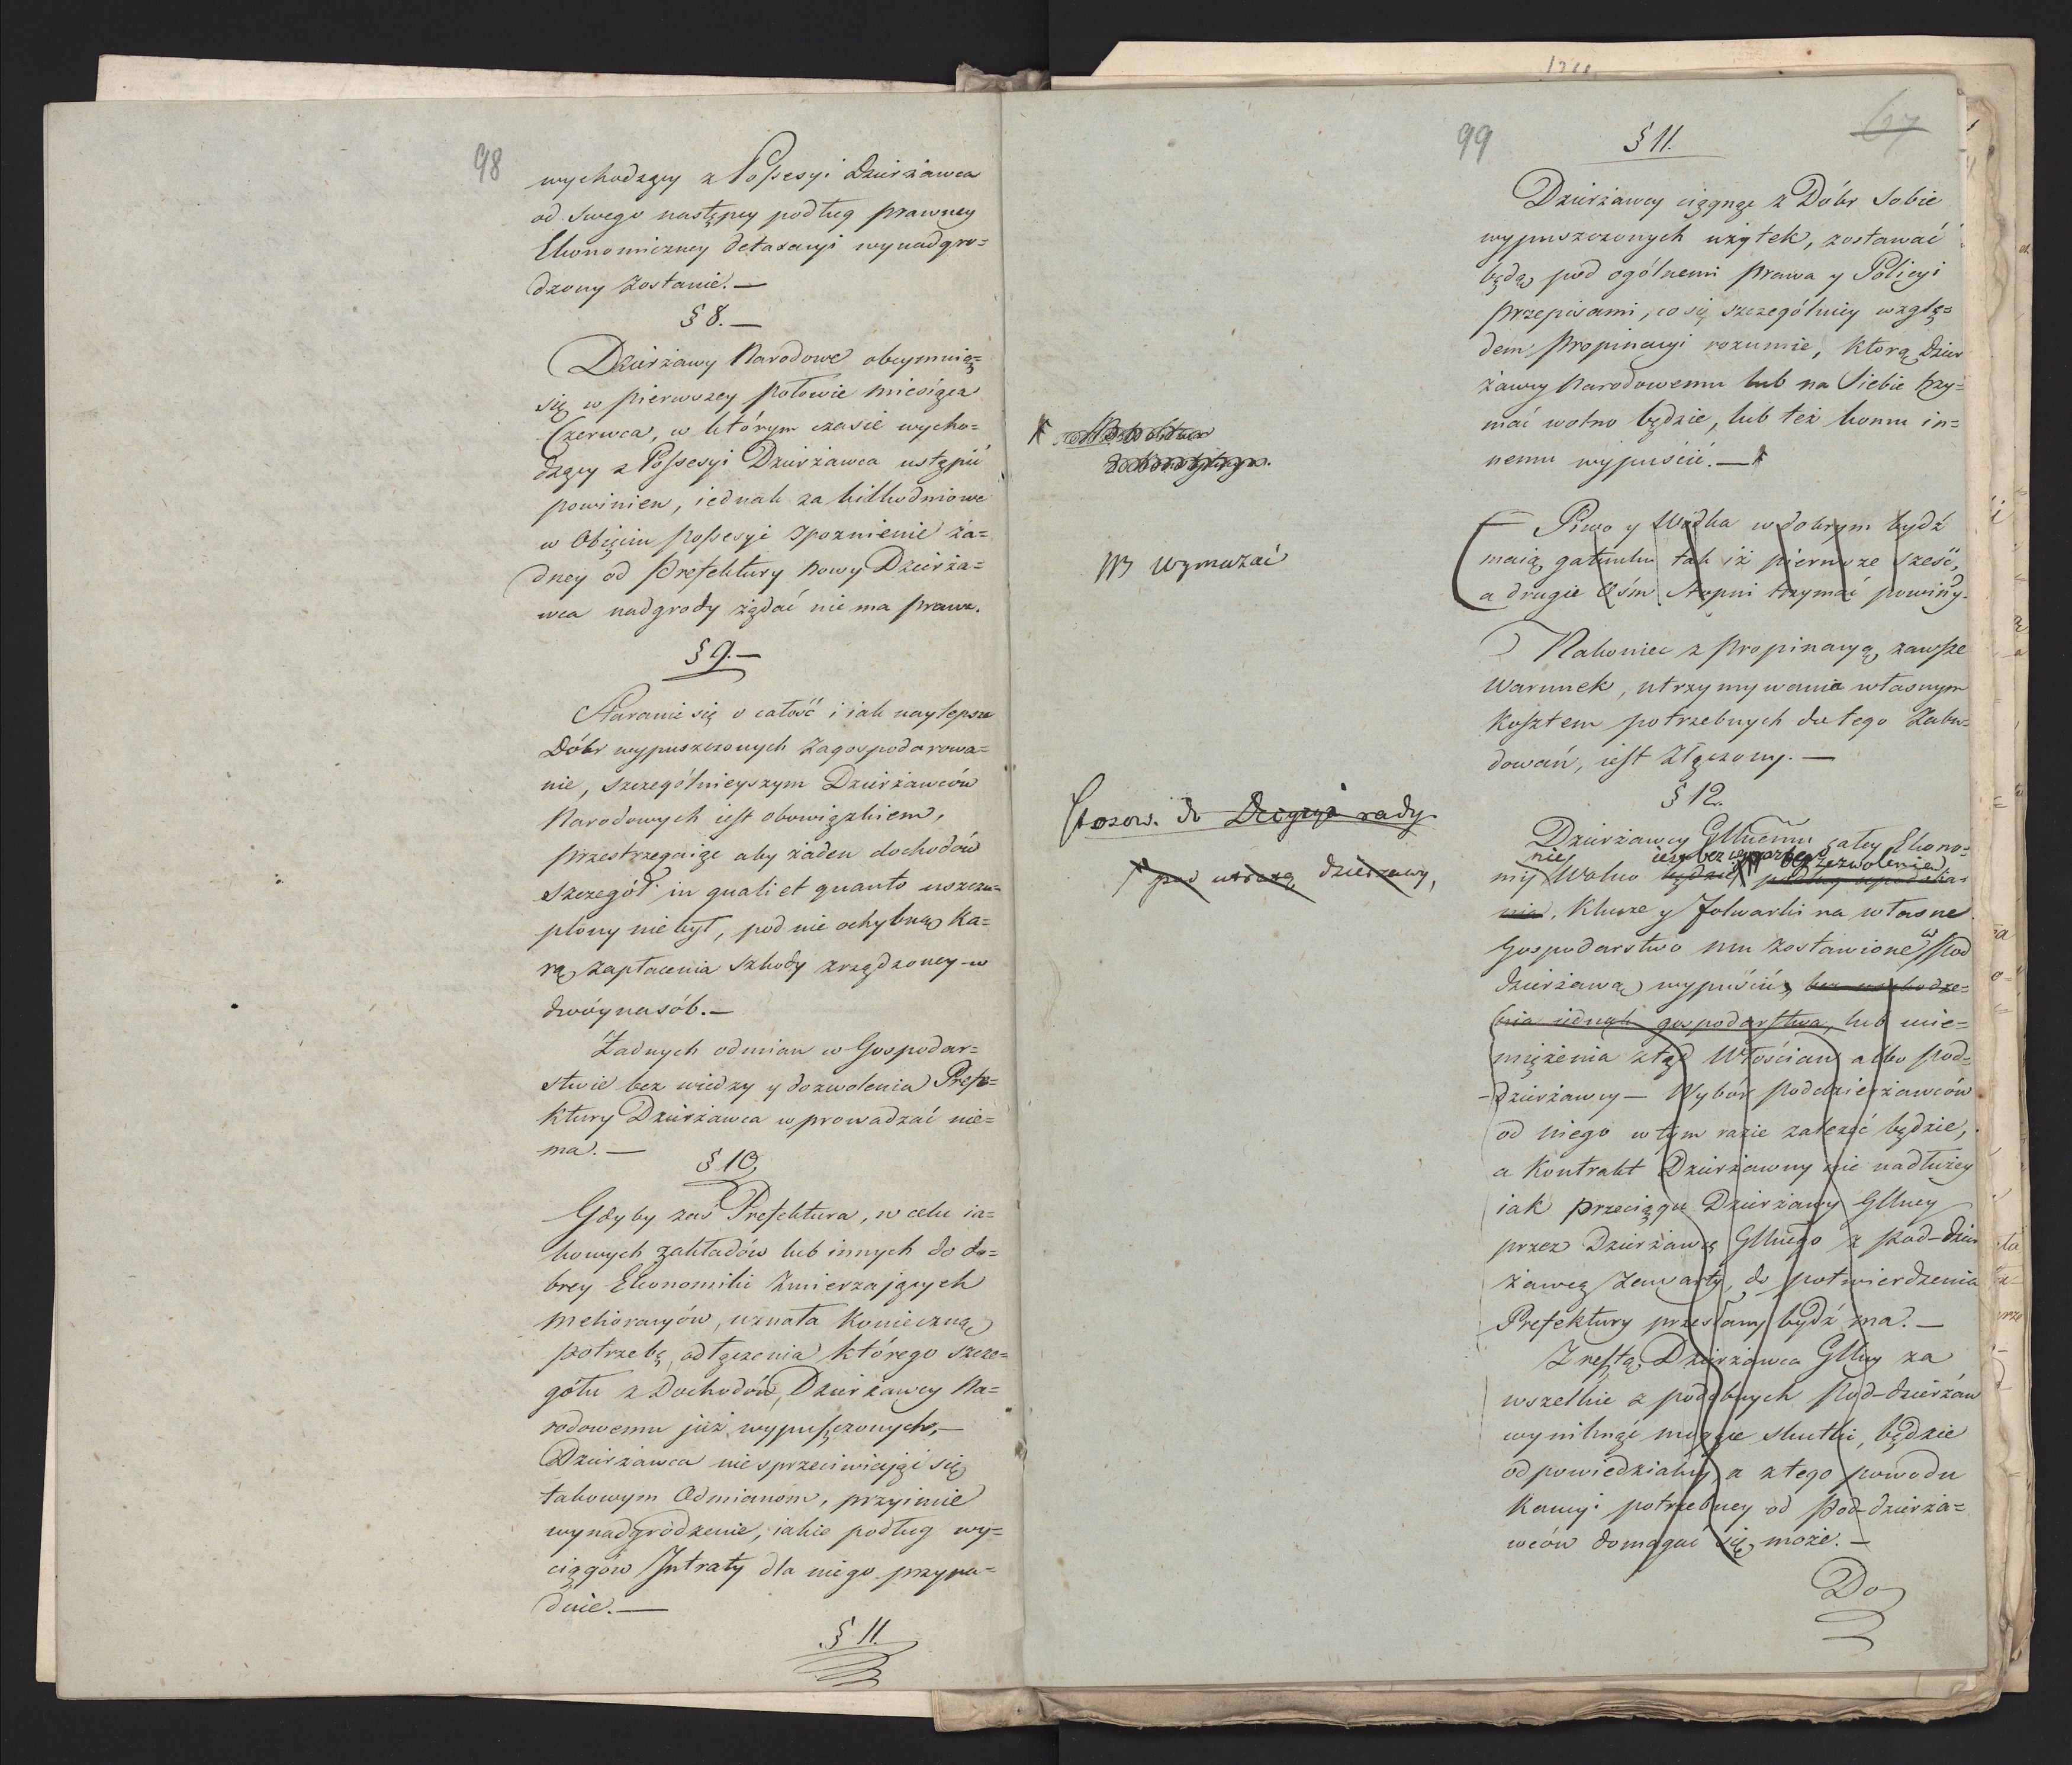 98
wychodzący z Possesyi Dzierżawca
od swego następcy podług prawney
Ekonomiczney detaxacyi wynadgro=
dzony zostanie. —
§ 8. —
Dzierżawy Narodowe obeymuią
się w pierwszey połowie miesiąca
Czerwca, w którym czasie wycho=
dzący z Possesyi Dzierżawca ustąpić
powinien, iednak za kilkodniowe
w Obięciu possesyi spoznienie ża=
dney od Prefektury nowy Dzierża=
wca nadgrody żądać nie ma prawa.
§ 9. —
Staranie się o całość i iak naylepsze
Dóbr wypuszczonych zagospodarowa=
nie, szczególnieyszym Dzierżawców
Narodowych iest obowiązkiem,
przestrzegaiąc aby żaden dochodów
szczegół in quali et quanto uszczu=
plony nie był, pod nie ochybną ka=
rą zapłacenia szkody zrządzoney w
dwóynasób. —
Żadnych odmian w Gospodar=
stwie bez wiedzy y dozwolenia Prefe=
ktury Dzierżawca wprowadzać nie=
ma. —
§ 10,
Gdyby zaś Prefektura, w celu ia=
kowych zakładów lub innych do do=
brey Ekonomiki zmierzających
melioracyów, uznała konieczną
potrzebę odłączenia którego szcze=
gółu z Dochodów, Dzierżawcy Na=
rodowemu już wypuszczonych, —
Dzierżawca niesprzeciwiając się
takowym Odmianom, przyimie
wynadgrodzenie, iakie podług wy=
ciągów Intraty dla niego przypa=
dnie. —
§ 11.
99
67
§ 11.
Dzierżawcy ciągnąc z Dóbr sobie
wypuszczonych użytek, zostawać
będą pod ogólnemi prawa y Policyi
przepisami, co się szczególniey wzglę=
dem Propinacyi rozumie, którą Dzier
żawcy Narodowemu lub na Siebie trzy=
mać wolno będzie, lub też komu in=
nemu wypuścić. —
Piwo y Wódka w dobrym bydź
maią gatunku tak iż pierwsze sześć,
a drugie Ośm stopni trzymać powiny.
NB wymazać
Nakoniec z propinacyą zawsze
warunek, utrzymywania własnym
kosztem potrzebnych do tego Zabu=
dowań, iest złączony. —
§ 12.
Stosow. do Decyzyi rady.
pod utratą dzierzawy,
Dzierżawcy Gllnemu całey Ekono=
nie bez zezwolenia
mii Wolno będzie
nia, Klucze y folwarki na własne
Gospodarstwo mu zostawione w Pod
dzierżawę wypuścić, bez uszkodze=
nia iednak gospodarstwa, lub ucie=
miężenia ztąd Włościan albo pod=
dzierżawcy — Wybór poddzierżawców
od niego w tym razie zależeć będzie,
a kontrakt Dzierżawny nie nadłużey
iak przeciągu Dzierżawy Gllney
przez Dzierżawcę Gllnego z pod-dzier
żawcą zawarty, do potwierdzenia
Prefektury przesłany bydź ma. —
Zresztą Dzierżawca Gllny za
wszelkie z podobnych Pod-dzierżaw
wyniknąć mogące skutki, będzie
odpowiedzialny a z tego powodu
kaucyi potrzebney od pod-dzierża=
wców domagać się może. —
Do